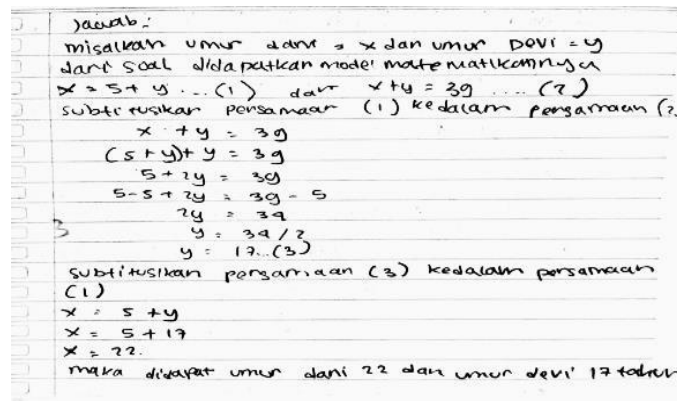 Jawab:
misalkan umur dani = x dan umur Devi = y
dari soal didapatkan model matematikannya
x = 5 + y ... (1) dan x + y = 39 .... (2)
subtitusikan persamaan (1) kedalam persamaan (2
x + y = 39
(5 + y) + y = 39
5 + 2y = 39
5 - 5 + 2y = 39 - 5
2y = 34
3
y = 34 / 2
y = 17...(3)
subtitusikan persamaan (3) kedalam persamaan
(1)
x = 5 + y
x = 5 + 17
x = 22.
maka didapat umur dani 22 dan umur devi 17 tahun